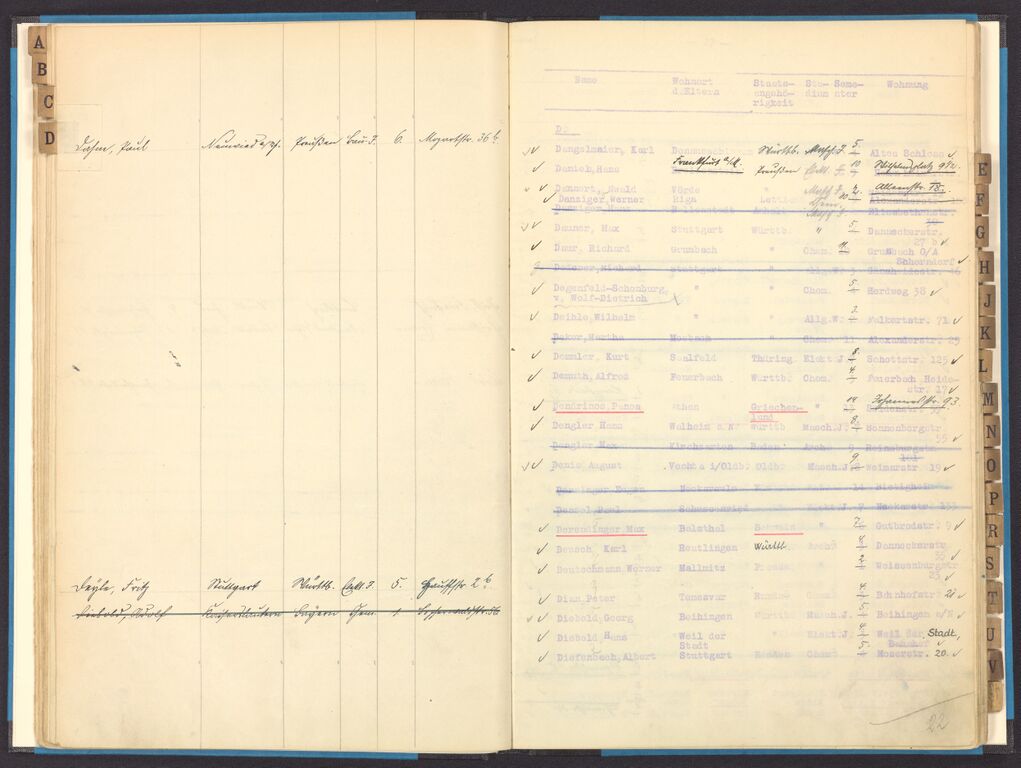 A
B
C
D
Dahm, Paul Neuwied a/Rh. Preußen Bau-I. 6. Mozartstr. 36 b.
Deyle, Fritz Stuttgart Württb. Elekt. I. 5. Hauffstr. 2 b
Diebold, Adolf Kaiserslautern Bayern Chem. 1
Name Wohnort d.Eltern Staats-angehö-rigkeit Stu-dium Seme-ster Wohnung
Da
Dangelmaier, Karl Württb. Masch. I. 5. Altes Schloss
Daniel, Hans Frankfurt a/M. Preußen Elekt. I. 10 Wilhelmsplatz 9/2.
Dannert, Ewald Vörde " Masch. I. 2. Alleenstr.
Danziger, Werner Riga Lettl. Chem. 10 Alexanderstr.
Danziger, Hans Ballenstedt Anhalt
Dauner, Max Stuttgart Württb. " 5. Danneckerstr. 27 b
Daur, Richard Grunbach " Chem. Grunbach O/A Schorndorf
Richard Stuttgart " Allg.W. 46
Degenfeld-Schonburg, " " Chem. 5. Herdweg 38
v. Wolf-Dietrich
Deihle, Wilhelm " " Allg.W. 3. Falkertstr. 71
Deker, Martha Mosbach " Chem. 11 Alexanderstr. 25
Demmler, Kurt Saalfeld Thüring. Elekt.J. 8. Schottstr. 125
Demuth, Alfred Feuerbach Württb. Chem. 4. Feuerbach Heide-
str. 17
Dendrinos, Panos Athen Griechen-land " 14 Johannesstr. 93
Dengler Hans Walheim a/N Württb Masch.J. 8. Sonnenbergstr. 55
Dengler Max Kirchzarten Baden Arch. 9 Reinsburgstr. 101
Denis August Vechta i/Oldb. Oldb. Masch.J. 9 Weimarstr. 19
Eugen 14 Bietigheim
Denzel, Paul Neckarstr. 153
Derendinger Max Balsthal Schweiz " 7. Gutbrodstr. 9
Deusch, Karl Reutlingen Württ. Arch. 8 Danneckerstr.
Deutschmann, Werner Mallnitz Preuss. " 2. Weissenburgstr. 23
Dian, Peter Temesvar Rumän. Chem. 4. Bahnhofstr. 21
Diebold, Georg Beihingen Württb. Masch.J. 5. Beihingen a/N
Diebold, Hans Weil der Stadt " Elekt.J. 4. Weil der Stadt, Bahnhof
Diefenbach, Albert Stuttgart Baden Chem. 5. Moserstr. 20.
22
E
F
G
H
J
K
L
M
N
O
P
R
S
T
U
V